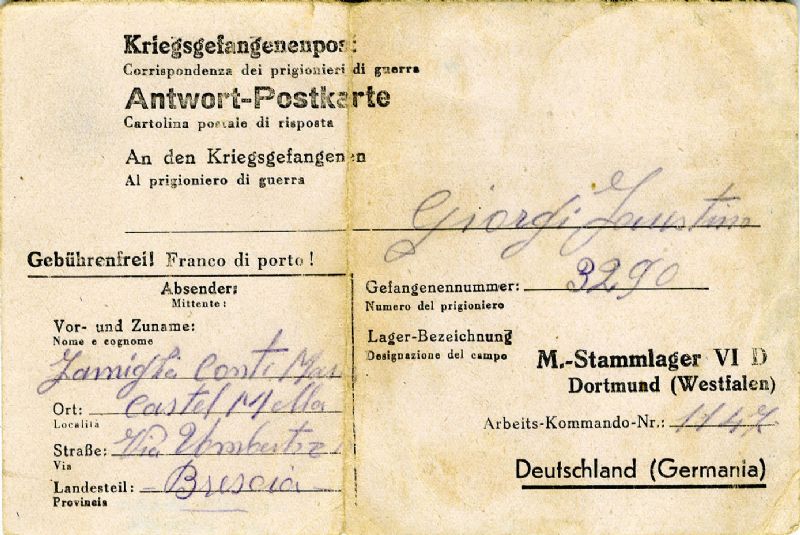 Kriegsgefangenenpost
Corrispondenza dei prigionieri di guerra
Antwort-Postkarte
Cartolina postale di risposta
An den Kriegsgefangenen
Al prigioniero di guerra
Giorgi Faustino
Gebührenfrei! Franco di porto!
Absender:
Mittente:
Vor- und Zuname:
Nome e cognome
Famiglia Conti
Ort: Castel Mella
Località
Straße: Via Umberto
Via
Landesteil: - Brescia -
Provincia
Gefangenennummer: 3290
Numero del prigioniero
Lager-Bezeichnung
Designazione del campo
M.-Stammlager VI D
Dortmund (Westfalen)
Arbeits-Kommando-Nr.: 1147
Deutschland (Germania)